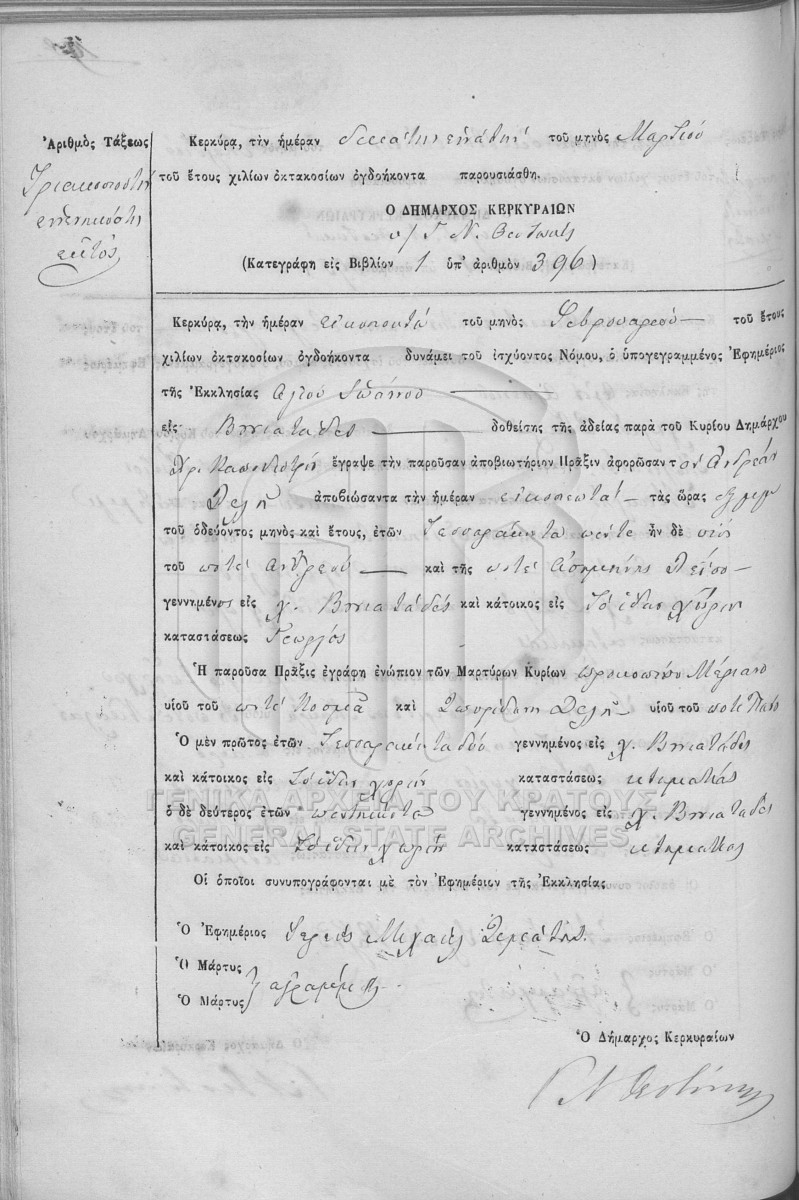 Ἀριθμὸς Τάξεως
Τριακοσιοστὴ
ἐννενηκοστὴ
ἕκτος
Κερκύρᾳ, τὴν ἡμέραν δεκάτην ἐννάτην τοῦ μηνὸς Μαρτίου
τοῦ ἔτους χιλίων ὀκτακοσίων ὀγδοήκοντα παρουσιάσθη.
Ο ΔΗΜΑΡΧΟΣ ΚΕΡΚΥΡΑΙΩΝ
Γ Ν. Θεοτόκης
(Κατεγράφη εἰς Βιβλίον 1 ὑπ' ἀριθμὸν 396)
Κερκύρᾳ, τὴν ἡμέραν τοῦ μηνὸς Φεβρουαρίου τοῦ ἔτους
χιλίων ὀκτακοσίων ὀγδοήκοντα δυνάμει τοῦ ἰσχύοντος Νόμου, ὁ ὑπογεγραμμένος Ἐφημέριος
τῆς Ἐκκλησίας Ἁγίου Ἰωάννου
εἰς Βηνιατάδες δοθείσης τῆς ἀδείας παρὰ τοῦ Κυρίου Δημάρχου
ἔγραψε τὴν παροῦσαν ἀποβιωτήριον Πρᾶξιν ἀφορῶσαν τὸν Ἀνδρέαν
Δελῆ ἀποβιώσαντα τὴν ἡμέραν τὰς ὥρας
τοῦ ὁδεύοντος μηνὸς καὶ ἔτους, ἐτῶν Τεσσαράκοντα πέντε ἦν δὲ υἱὸς
τοῦ ποτὲ Ἀνδρέου καὶ τῆς ποτὲ
γεννημένος εἰς χ. Βηνιατάδες καὶ κάτοικος εἰς Τὸ ἴδιον χωρίον
καταστάσεως Γεωργὸς
Ἡ παροῦσα Πρᾶξις ἐγράφη ἐνώπιον τῶν Μαρτύρων Κυρίων Προκοπίου Μέριανο
υἱοῦ τοῦ ποτὲ Κοσμᾶ καὶ Σπυρίδωνη Δελῆ υἱοῦ τοῦ ποτὲ
Ὁ μὲν πρῶτος ἐτῶν Τεσσαράκοντα δύο γεννημένος εἰς χ. Βηνιατάδες
καὶ κάτοικος εἰς Τὸ ἴδιον χωρίον καταστάσεως κτηματίας
ὁ δὲ δεύτερος ἐτῶν πενῆντα γεννημένος εἰς χ. Βηνιατάδες
καὶ κάτοικος εἰς Τὸ ἴδιον χωρίον καταστάσεως κτηματίας
Οἱ ὁποῖοι συνυπογράφονται μὲ τὸν Ἐφημέριον τῆς Ἐκκλησίας
Ὁ Ἐφημέριος Ἱερεὺς Μιχαὴλ
Ὁ Μάρτυς
Ὁ Μάρτυς ἀγράμματοι
Ὁ Δήμαρχος Κερκυραίων
Γ Ν Θεοτόκης
ΓΕΝΙΚΑ ΑΡΧΕΙΑ ΤΟΥ ΚΡΑΤΟΥΣ
GENERAL STATE ARCHIVES